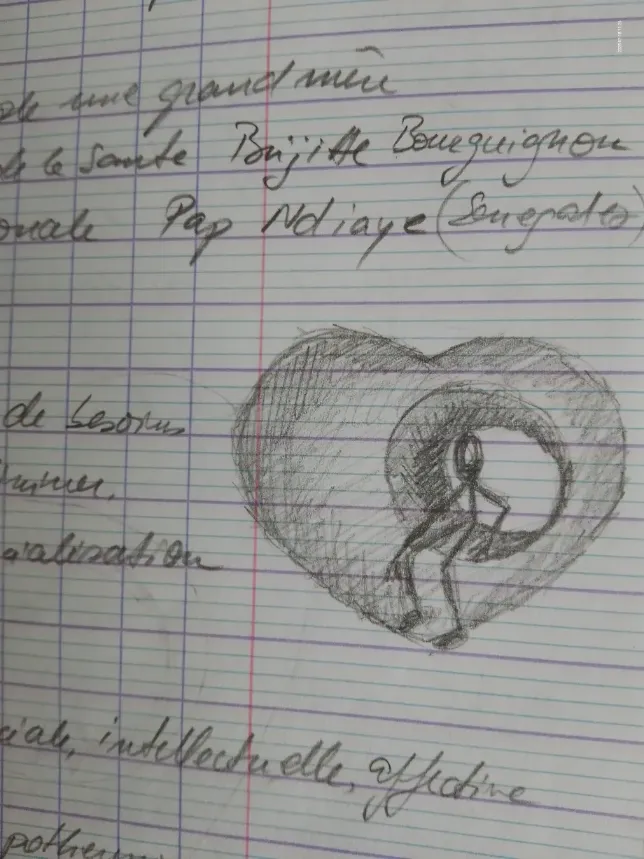 de une grand mère
de la Sante Brijitte Bourguignon
onale Pap Ndiaye (Senegalais)
de besoins
ialisation
ciale, intellectuelle, affective